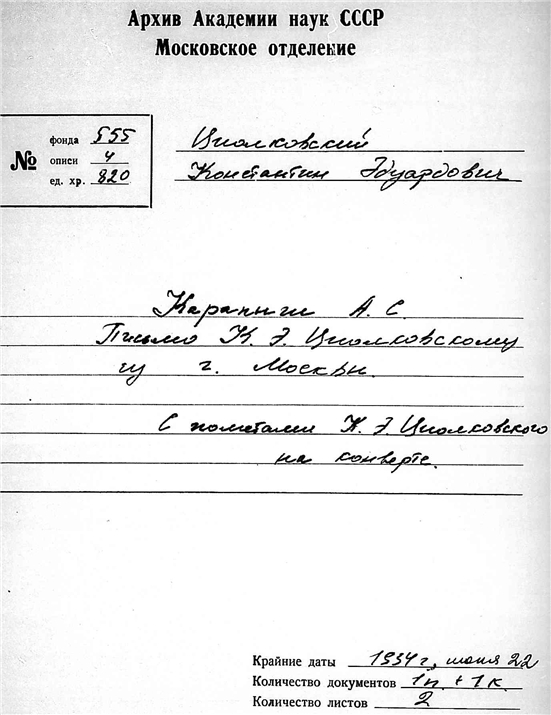 Архив Академии наук СССР
Московское отделение
№
фонда 555
описи 4
ед. хр. 820
Циолковский
Константин Эдуардович
А. С.
Письмо К. Э. Циолковскому
из г. Москвы.
С пометами К. Э. Циолковского
на конверте.
Крайние даты 1934 г., июня 22
Количество документов 1п. + 1к.
Количество листов 2